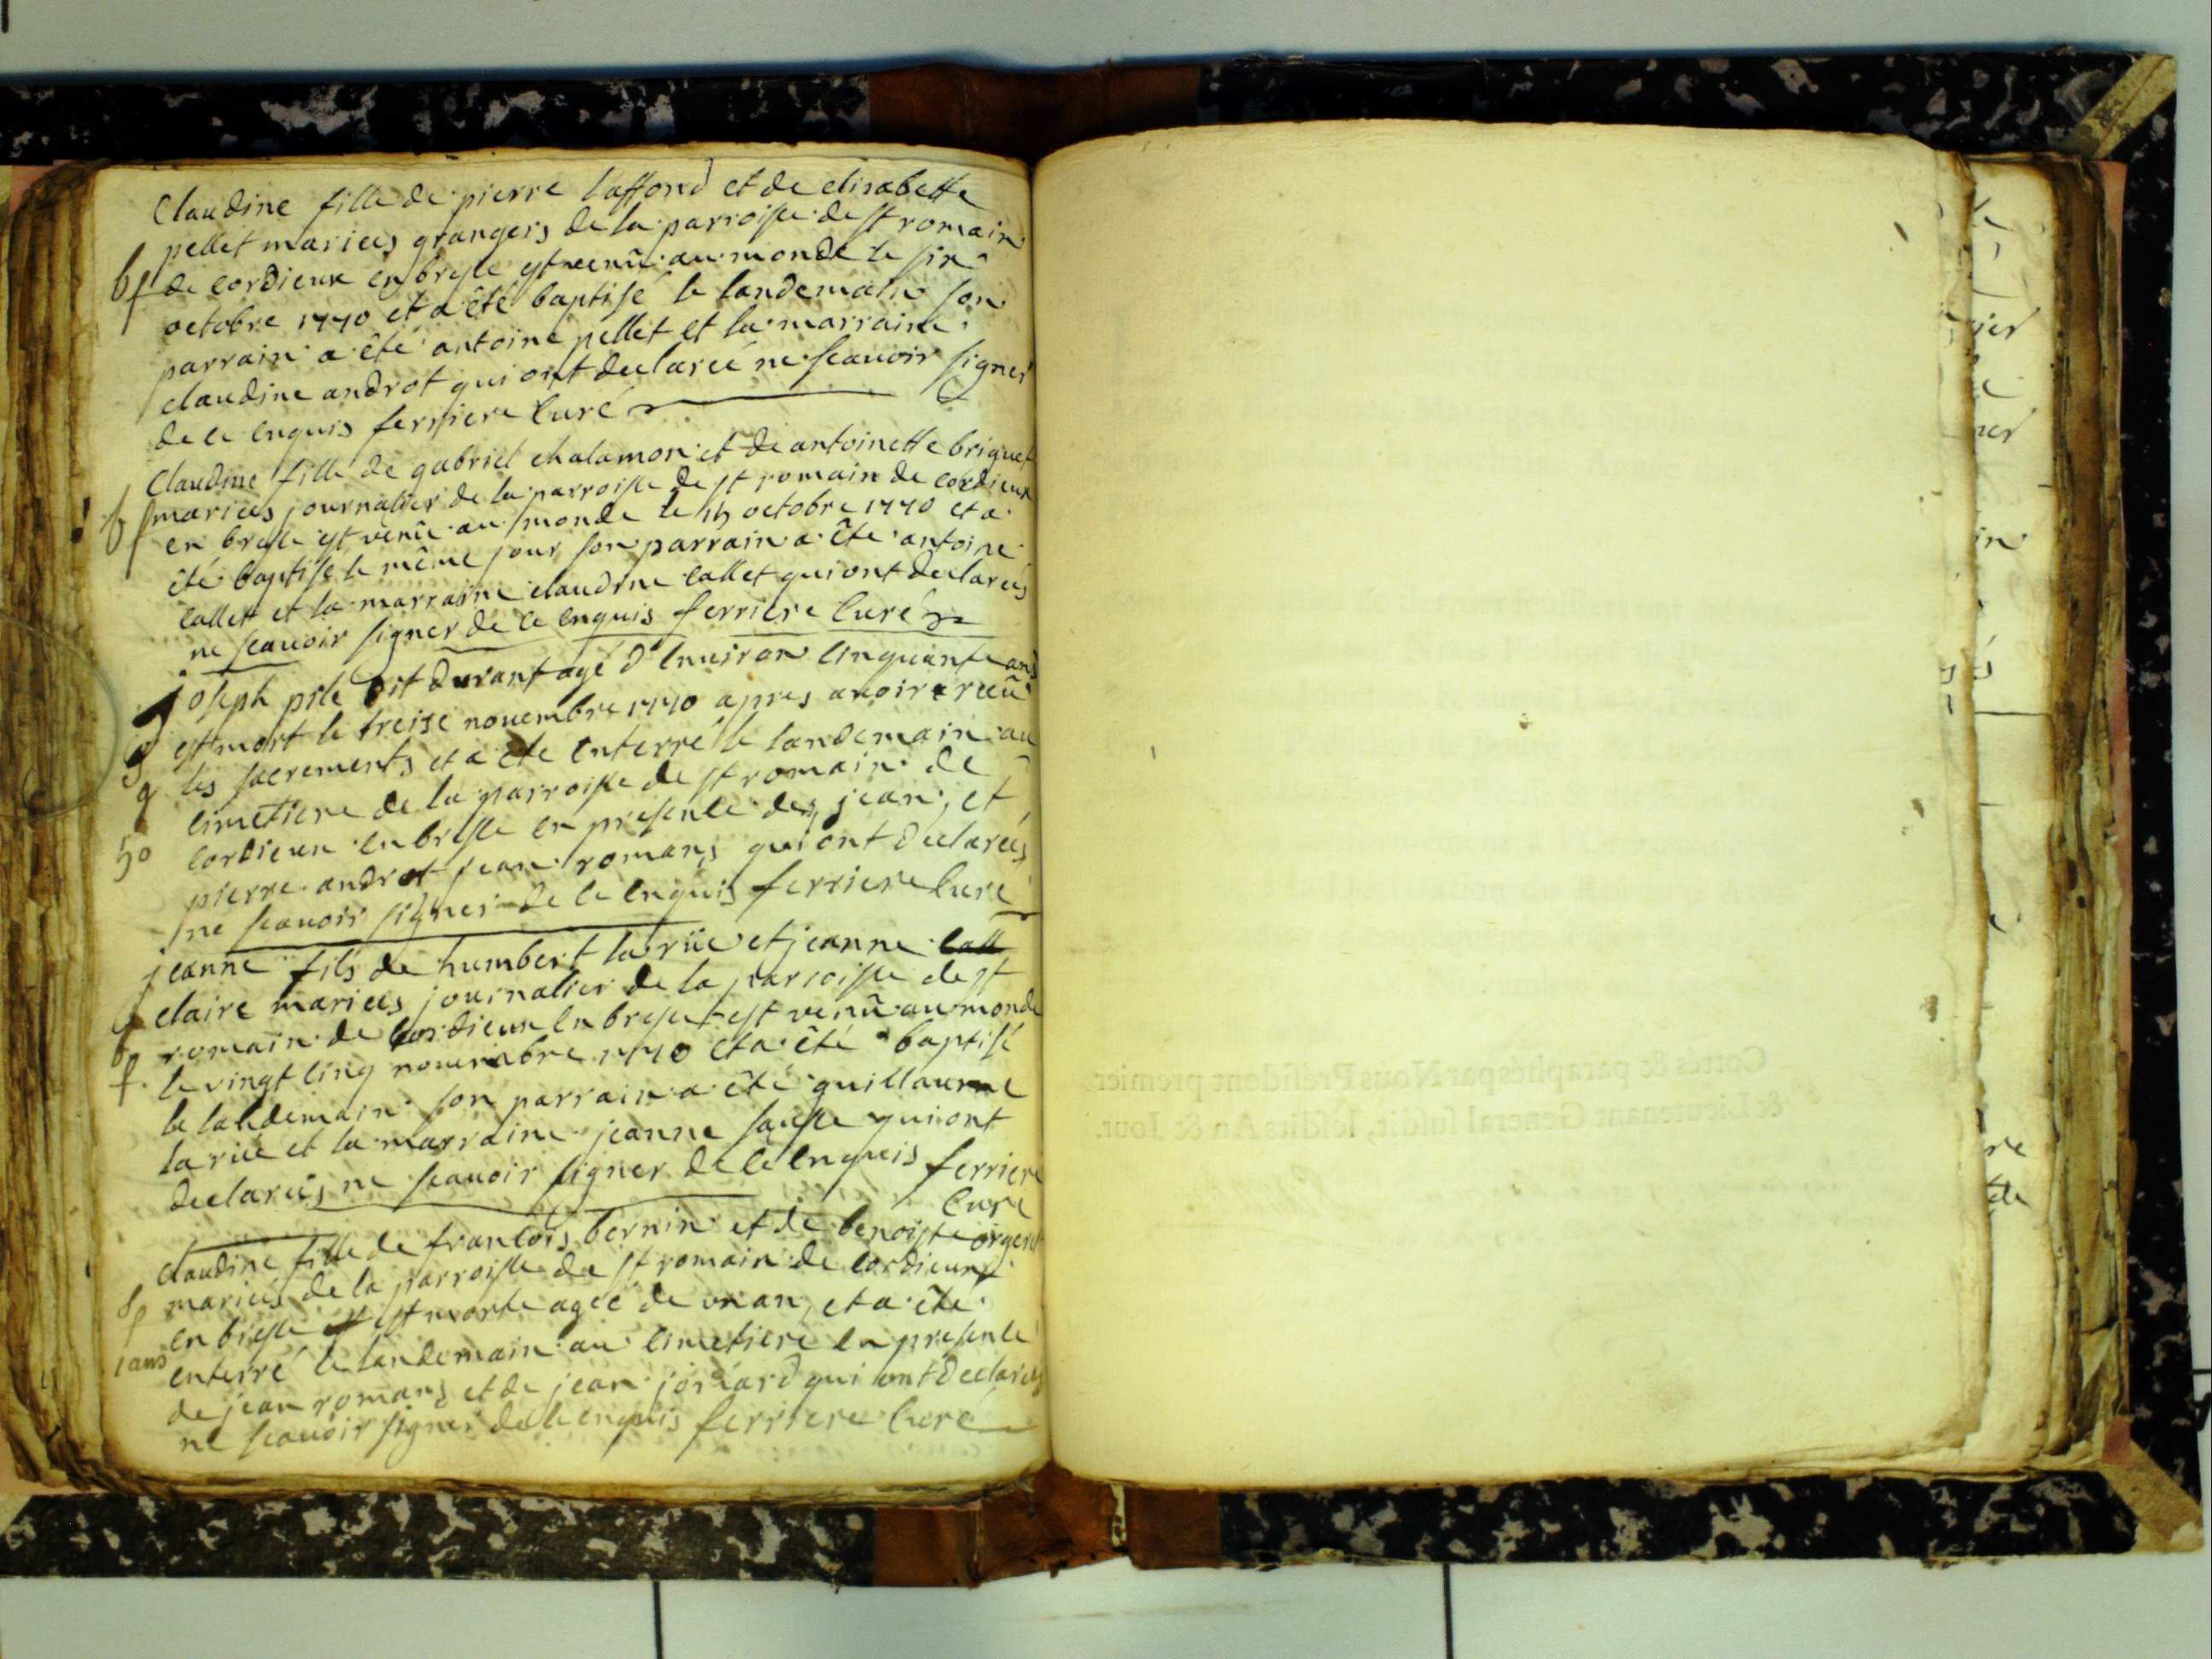 Claudine fille de pierre laffond et de elisabette
pellet mariees grangers de la parroisse de st romain
bf de cordieux en bresse est venû au monde le six
octobre 1770 et a êté baptisé le landemain son
parrain a êté antoine pellet et la marraine
claudine androt qui ont declareé ne scauoir signer
de ce enquis ferriere Curé
Claudine fille de gabriel chalamon et de antoinette briquet
bf mariees journalier de la parroisse de st romain de cordieux
en bresse est venû au monde le octobre 1770 et a
êté baptisé le même jour son parrain a êté antoine
callet et la marraine claudine callet qui ont declareés
ne scauoir signer de ce enquis ferriere Curé
joseph dit durant agé d'enuiron cinquante ans
est mort le treize nouembre 1770 apres auoir receû
g les sacrements et a êté enterré le landemain au
cimetiere de la parroisse de st romain de
50 cordieux en bresse en presence des jean, et
pierre androt jean romans qui ont declareés
ne scauoir signer de ce enquis ferriere Curé
jeanne fils de humbert la rüe et jeanne call
claire mariees journalier de la parroisse de st
romain de cordieux en bresse est venû au monde
f. le vingt cinq nouembre 1770 et a êté baptisé
le landemain son parrain a êté guillaume
la rüe et la marraine jeanne qui ont
declareés ne scauoir signer de ce enquis ferriere
Curé
claudine fille de francois bernin et de benoiste
marieés de la parroisse de st romain de cordieux
en bresse est est morte ageé de un an, et a êté
1 ans enterré le landemain au cimetiere en presence
de jean romans et de jean qui ont declareés
ne scauoir signer de ce enquis ferriere Curé
Cottés & paraphés par Nous Président premier
& Lieutenant General susdit, lesdits An & Jour.